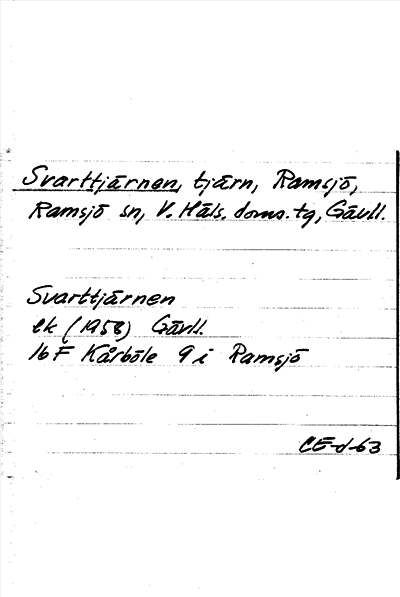 Svarttjärnen, tjärn, Ramsjö,
Ramsjö sn, V. Häls. doms. tg, Gävll.
Svarttjärnen
ek (1958) Gävll.
16 F Kårböle 9 i Ramsjö
CE-d-63